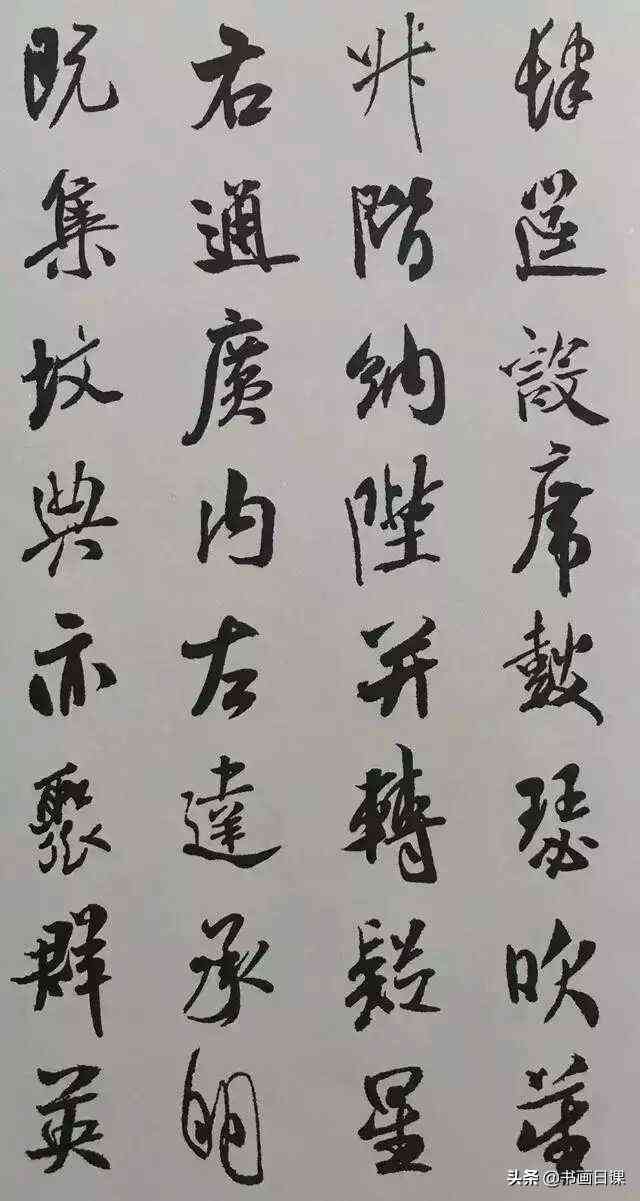 肆筵設席鼓瑟吹笙
升階納陛并轉疑星
右通廣内左達承明
既集坟典亦聚群英
头条 @书画日课